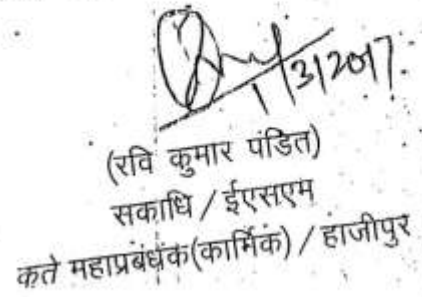 1/3/2017
(रवि कुमार पंडित)
सकाधि / ईएसएम
कते महाप्रबंधक(कार्मिक) / हाजीपुर